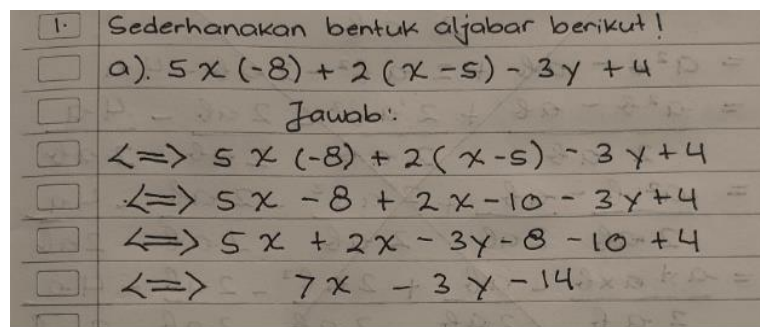 1. Sederhanakan bentuk aljabar berikut!
a). 5x(-8) + 2(x-5) - 3y + 4
Jawab:
<=> 5x(-8) + 2(x-5) - 3y + 4
<=> 5x - 8 + 2x - 10 - 3y + 4
<=> 5x + 2x - 3y - 8 - 10 + 4
<=> 7x - 3y - 14